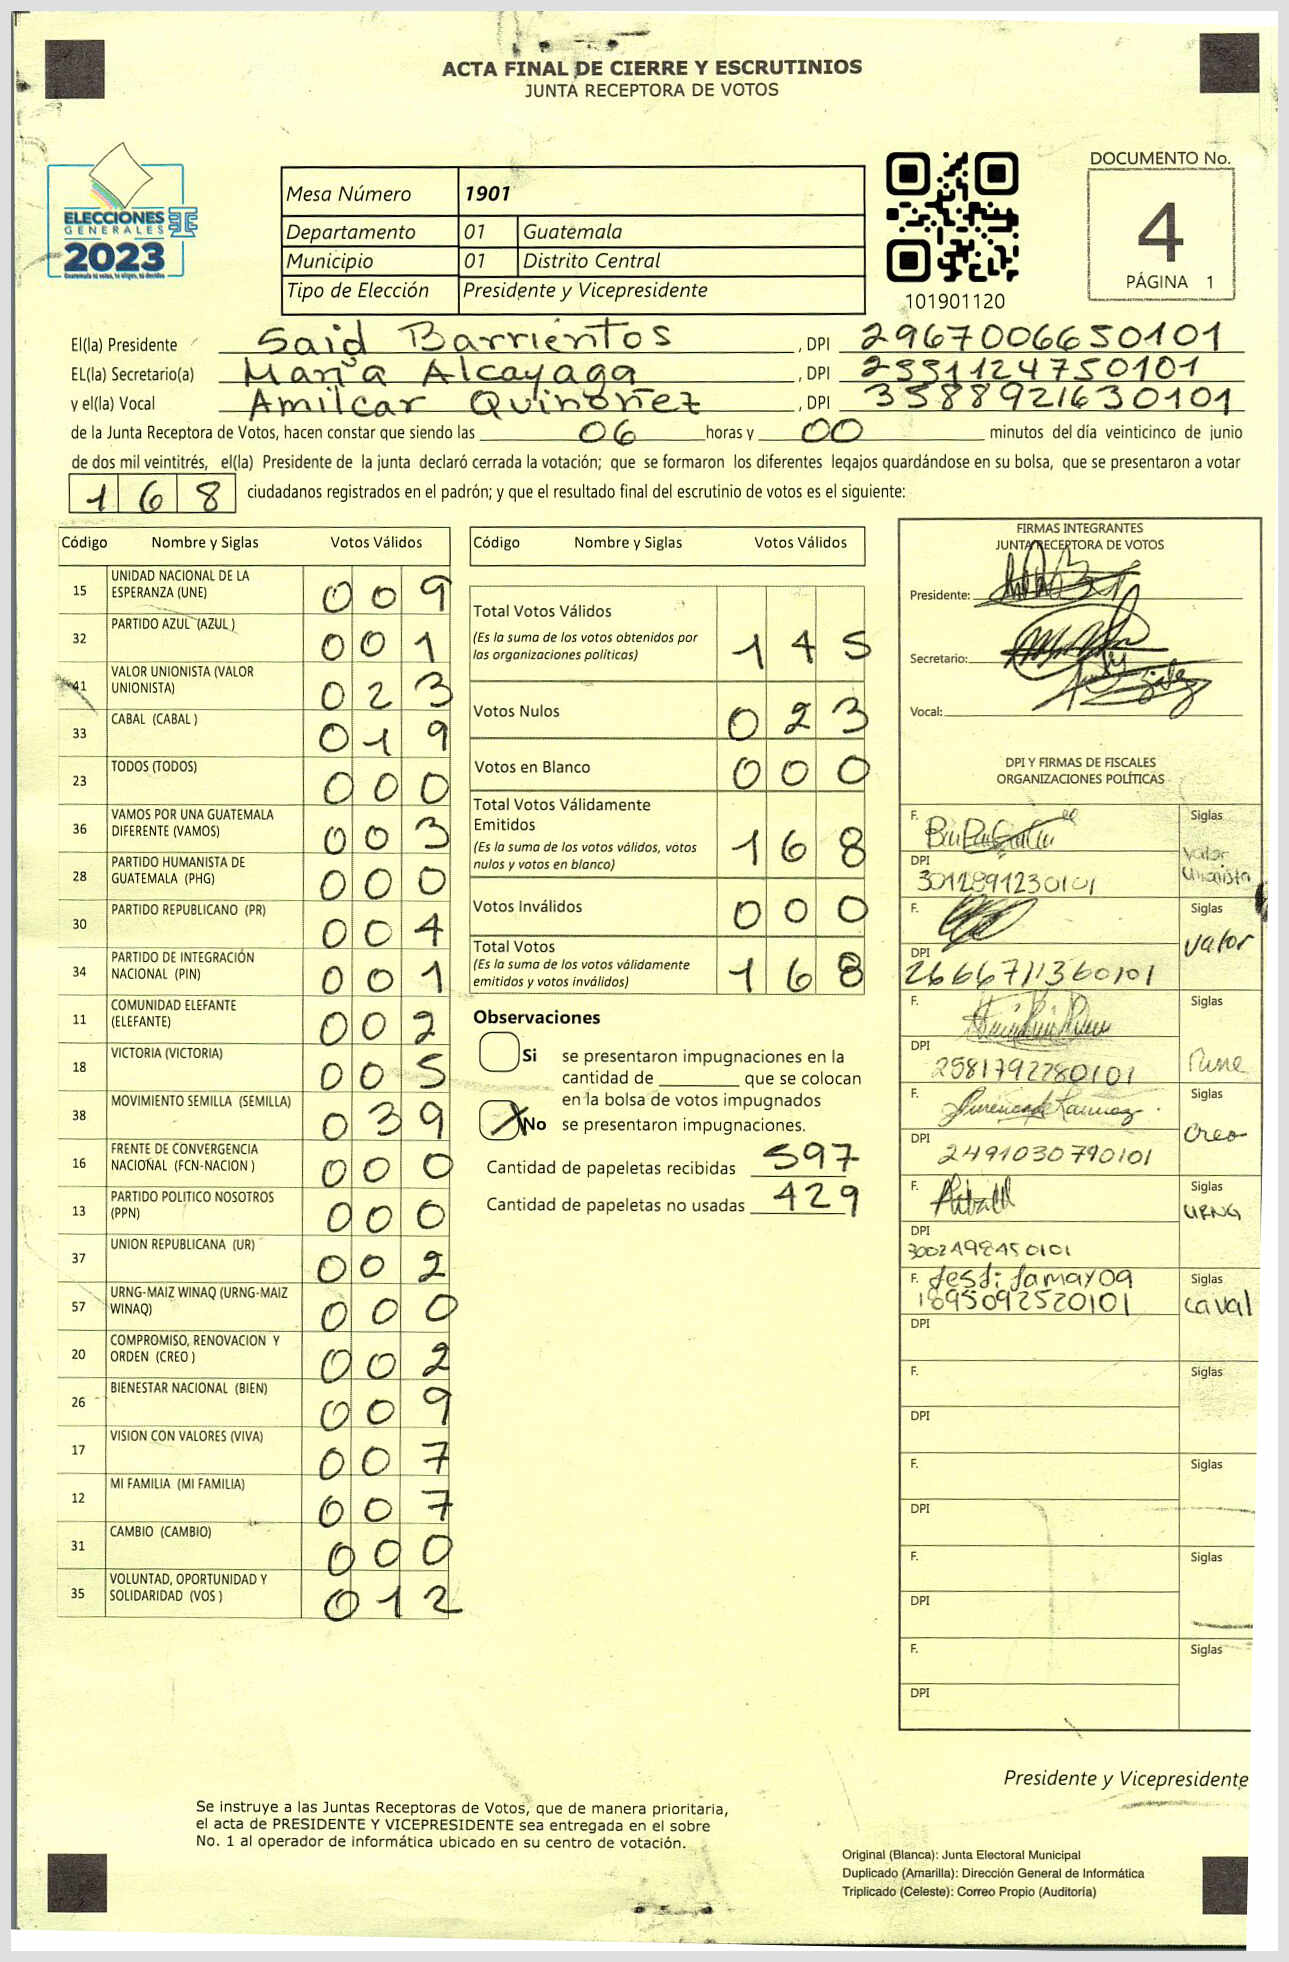 ACTA FINAL DE CIERRE Y ESCRUTINIOS
JUNTA RECEPTORA DE VOTOS
ELECCIONES
GENERALES
2023
Guatemala tú votas, tú eliges, tú decides
Mesa Número 1901
Departamento 01 Guatemala
Municipio 01 Distrito Central
Tipo de Elección Presidente y Vicepresidente
101901120
DOCUMENTO No.
4
PÁGINA 1
El(la) Presidente Said Barrientos, DPI 2967006650101
EL(la) Secretario(a) María Alcayaga, DPI 2331124750101
y el(la) Vocal Amilcar Quiñoñez, DPI 3588921630101
de la Junta Receptora de Votos, hacen constar que siendo las 06 horas y 00 minutos del día veinticinco de junio
de dos mil veintitrés, el(la) Presidente de la junta declaró cerrada la votación; que se formaron los diferentes legajos guardándose en su bolsa, que se presentaron a votar
168 ciudadanos registrados en el padrón; y que el resultado final del escrutinio de votos es el siguiente:
Código Nombre y Siglas Votos Válidos
15 UNIDAD NACIONAL DE LA ESPERANZA (UNE) 009
32 PARTIDO AZUL (AZUL ) 001
41 VALOR UNIONISTA (VALOR UNIONISTA) 023
33 CABAL (CABAL ) 019
23 TODOS (TODOS) 000
36 VAMOS POR UNA GUATEMALA DIFERENTE (VAMOS) 003
28 PARTIDO HUMANISTA DE GUATEMALA (PHG) 000
30 PARTIDO REPUBLICANO (PR) 004
34 PARTIDO DE INTEGRACIÓN NACIONAL (PIN) 001
11 COMUNIDAD ELEFANTE (ELEFANTE) 002
18 VICTORIA (VICTORIA) 005
38 MOVIMIENTO SEMILLA (SEMILLA) 039
16 FRENTE DE CONVERGENCIA NACIONAL (FCN-NACION ) 000
13 PARTIDO POLITICO NOSOTROS (PPN) 000
37 UNION REPUBLICANA (UR) 002
57 URNG-MAIZ WINAQ (URNG-MAIZ WINAQ) 000
20 COMPROMISO, RENOVACION Y ORDEN (CREO ) 002
26 BIENESTAR NACIONAL (BIEN) 009
17 VISION CON VALORES (VIVA) 007
12 MI FAMILIA (MI FAMILIA) 007
31 CAMBIO (CAMBIO) 000
35 VOLUNTAD, OPORTUNIDAD Y SOLIDARIDAD (VOS ) 012
Código Nombre y Siglas Votos Válidos
Total Votos Válidos 145
(Es la suma de los votos obtenidos por
las organizaciones políticas)
Votos Nulos 023
Votos en Blanco 000
Total Votos Válidamente
Emitidos 168
(Es la suma de los votos válidos, votos
nulos y votos en blanco)
Votos Inválidos 000
Total Votos 168
(Es la suma de los votos válidamente
emitidos y votos inválidos)
Observaciones
Si se presentaron impugnaciones en la
cantidad de ________ que se colocan
en la bolsa de votos impugnados
X No se presentaron impugnaciones.
Cantidad de papeletas recibidas 597
Cantidad de papeletas no usadas 429
FIRMAS INTEGRANTES
JUNTA RECEPTORA DE VOTOS
Presidente:
Secretario:
Vocal:
DPI Y FIRMAS DE FISCALES
ORGANIZACIONES POLÍTICAS
F. Siglas Valor Unionista
DPI 3012891230101
F. Siglas Valor
DPI 2666711360101
F. Siglas
DPI 2581792280101
F. Siglas Creo
DPI 2491030790101
F. Siglas URNG
DPI 3002498450101
F. Siglas caval
1695092520101
DPI
F. Siglas
DPI
F. Siglas
DPI
F. Siglas
DPI
F. Siglas
DPI
Presidente y Vicepresidente
Se instruye a las Juntas Receptoras de Votos, que de manera prioritaria,
el acta de PRESIDENTE Y VICEPRESIDENTE sea entregada en el sobre
No. 1 al operador de informática ubicado en su centro de votación.
Original (Blanca): Junta Electoral Municipal
Duplicado (Amarilla): Dirección General de Informática
Triplicado (Celeste): Correo Propio (Auditoría)